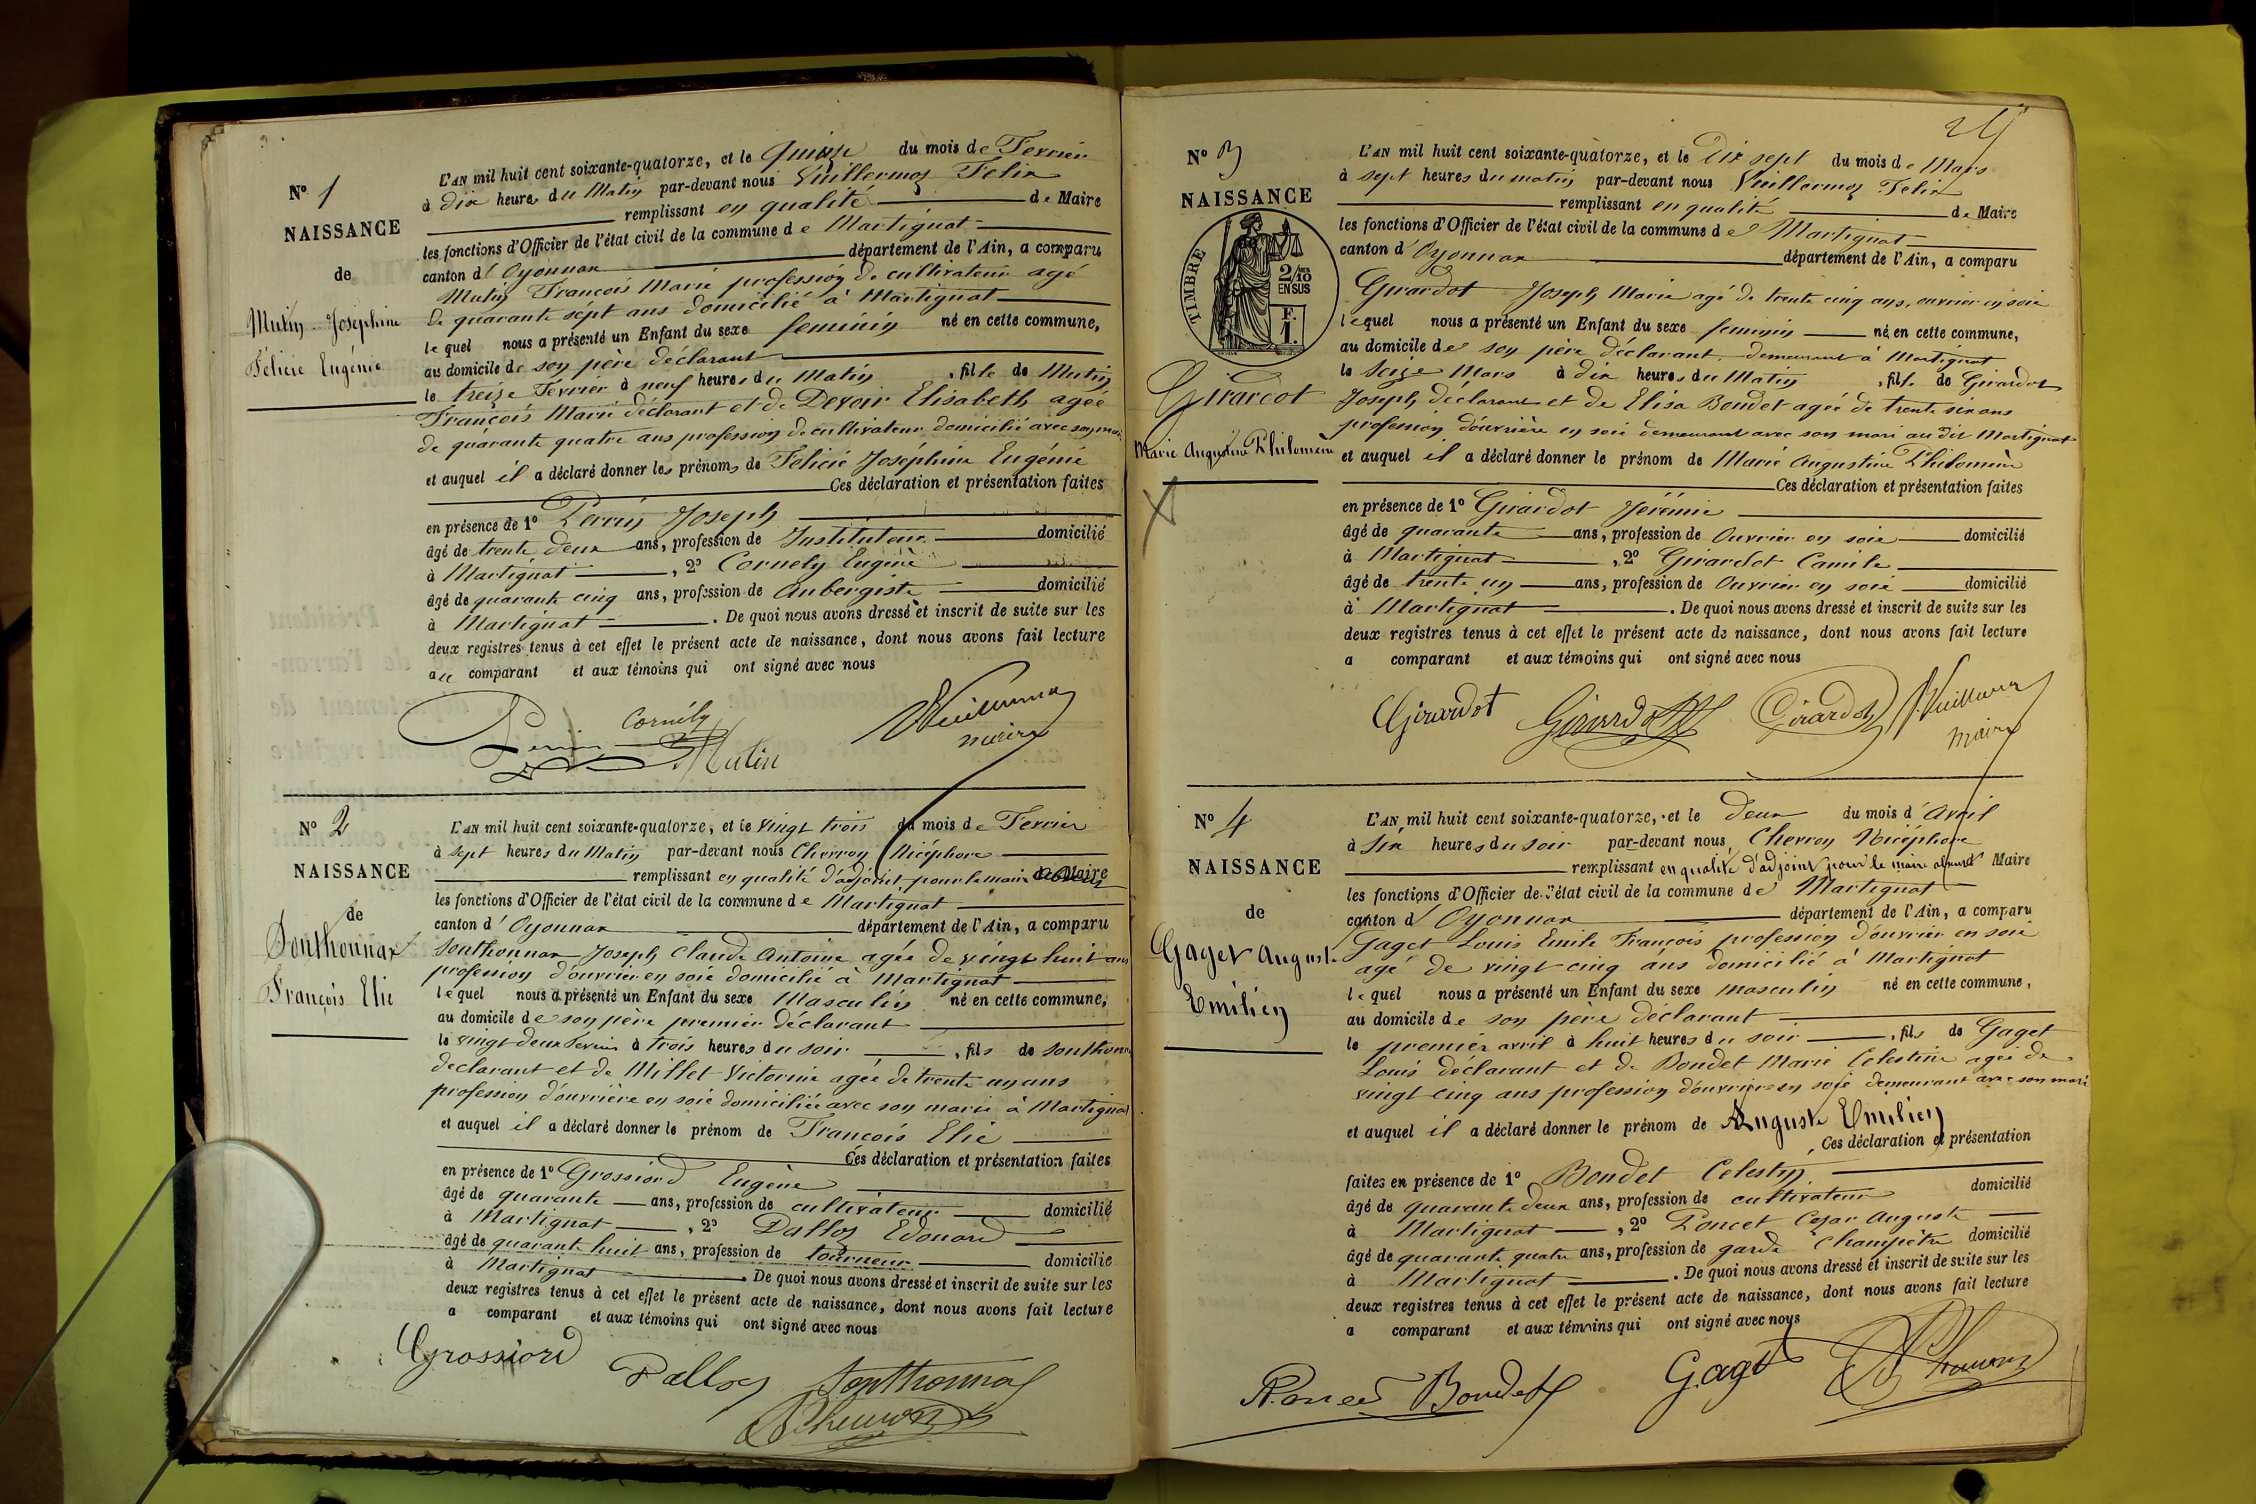 N° 1
NAISSANCE
de
Mutin Joséphine
Félicie Eugénie
L'AN mil huit cent soixante-quatorze, et le quinze du mois de Fevrier
à dix heures du Matin par-devant nous Vuillermoz Felix
remplissant en qualité de Maire
les fonctions d'Officier de l'état civil de la commune de Martignat
canton d'Oyonnax département de l'Ain, a comparu
Mutin François Marie profession de cultivateur agé
de quarante sept ans domicilié à Martignat
lequel nous a présenté un Enfant du sexe feminin né en cette commune,
au domicile de son père déclarant
le treize Fevrier à neuf heures du Matin, fille de Mutin
François Marie déclarant et de Devoir Elisabeth agée
de quarante quatre ans profession de cultivateur domicilié avec son mari
et auquel il a déclaré donner les prénoms de Félicie Joséphine Eugénie
Ces déclaration et présentation faites
en présence de 1° Perrin Joseph
âgé de trente deux ans, profession de Instituteur domicilié
à Martignat, 2° Cornely Eugène
âgé de quarante cinq ans, profession de Aubergiste domicilié
à Martignat. De quoi nous avons dressé et inscrit de suite sur les
deux registres tenus à cet effet le présent acte de naissance, dont nous avons fait lecture
au comparant et aux témoins qui ont signé avec nous
Cornély
Perrin Mutin Vuillermoz
maire
N° 2
NAISSANCE
de
Sonthonnax
François Elie
L'AN mil huit cent soixante-quatorze, et le vingt trois du mois de Fevrier
à sept heures du Matin par-devant nous Chevron Nicéphore
remplissant en qualité d'adjoint pour le maire de Maire
les fonctions d'Officier de l'état civil de la commune de Martignat
canton d'Oyonnax département de l'Ain, a comparu
Sonthonnax Joseph Claude Antoine agée de vingt huit ans
profession d'ouvrier en soie domicilié à Martignat
lequel nous a présenté un Enfant du sexe Masculin né en cette commune,
au domicile de son père premier déclarant
le vingt deux Fevrier à trois heures du soir, fils de Sonthonnax
declarant et de Millet Victorine agée de trente un ans
profession d'ouvrière en soie domiciliée avec son marie à Martignat
et auquel il a déclaré donner le prénom de François Elie
Ces déclaration et présentation faites
en présence de 1° Grossiord Eugène
âgé de quarante ans, profession de cultivateur domicilié
à Martignat, 2° Dalloz Edouard
âgé de quarante huit ans, profession de tourneur domicilié
à Martignat. De quoi nous avons dressé et inscrit de suite sur les
deux registres tenus à cet effet le présent acte de naissance, dont nous avons fait lecture
a comparant et aux témoins qui ont signé avec nous
Grossiord Dalloz Sonthonnax
Chevron
N° 3
NAISSANCE
TIMBRE
2/10
EN SUS
F.
1.
Girardot
Marie Augustine Philomène
L'AN mil huit cent soixante-quatorze, et le Dix sept du mois de Mars
à sept heures du matin par-devant nous Vuillermoz Felix
remplissant en qualité de Maire
les fonctions d'Officier de l'état civil de la commune de Martignat
canton d'Oyonnax département de l'Ain, a comparu
Girardot Joseph Marie agé de trente cinq ans, ouvrier en soie
lequel nous a présenté un Enfant du sexe feminin né en cette commune,
au domicile de son père déclarant demeurant à Martignat
le Seize Mars à dix heures du Matin, fille de Girardot
Joseph déclarant et de Elisa Bondet agée de trente six ans
profession d'ouvrière en soie demeurant avec son mari au dit Martignat
et auquel il a déclaré donner le prénom de Marie Augustine Philomène
Ces déclaration et présentation faites
en présence de 1° Girardot Jérémie
âgé de quarante ans, profession de Ouvrier en soie domicilié
à Martignat, 2° Girardot Camile
âgé de trente un ans, profession de Ouvrier en soie domicilié
à Martignat. De quoi nous avons dressé et inscrit de suite sur les
deux registres tenus à cet effet le présent acte de naissance, dont nous avons fait lecture
a comparant et aux témoins qui ont signé avec nous
Girardot Girardot Girardot Vuillermoz
maire
N° 4
NAISSANCE
de
Gaget Auguste
Emilien
L'AN mil huit cent soixante-quatorze, et le deux du mois d'Avril
à Six heures du soir par-devant nous, Chevron Nicéphore
remplissant en qualité d'adjoint pour le maire absent Maire
les fonctions d'Officier de l'état civil de la commune de Martignat
canton d'Oyonnax département de l'Ain, a comparu
Gaget Louis Emile François profession d'ouvrier en soie
agé de vingt cinq ans domicilié à Martignat
lequel nous a présenté un Enfant du sexe masculin né en cette commune,
au domicile de son père déclarant
le premier avril à huit heures du soir, fils de Gaget
Louis déclarant et de Bondet Marie Celestine agée de
vingt cinq ans profession d'ouvrière en soie demeurant avec son mari
et auquel il a déclaré donner le prénom de Auguste Emilien
Ces déclaration et présentation
faites en présence de 1° Bondet Celestin
âgé de quarante deux ans, profession de cultivateur domicilié
à Martignat, 2° Poncet Cesar Auguste
âgé de quarante quatre ans, profession de garde Champêtre domicilié
à Martignat. De quoi nous avons dressé et inscrit de suite sur les
deux registres tenus à cet effet le présent acte de naissance, dont nous avons fait lecture
a comparant et aux témoins qui ont signé avec nous
Poncet Bondet Gaget Chevron